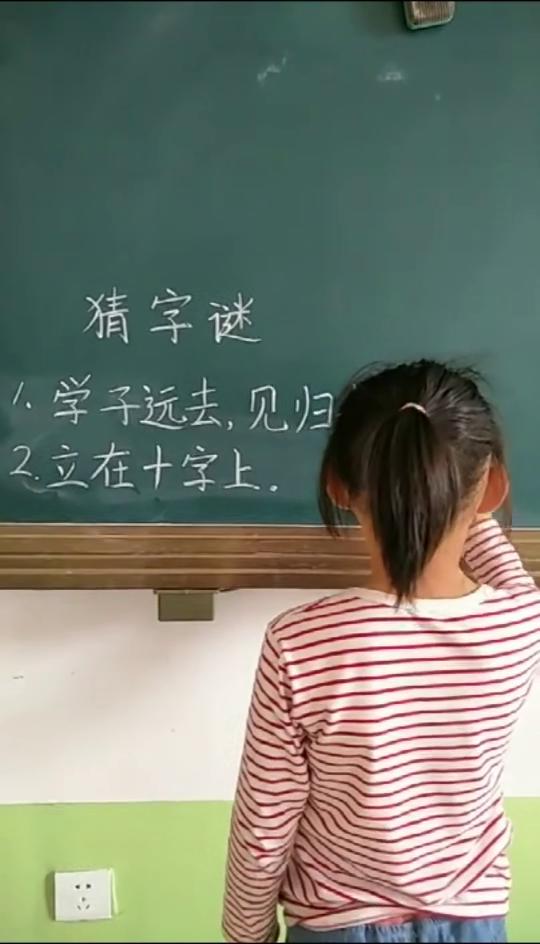 猜字谜
1. 学子远去,见归
2. 立在十字上.